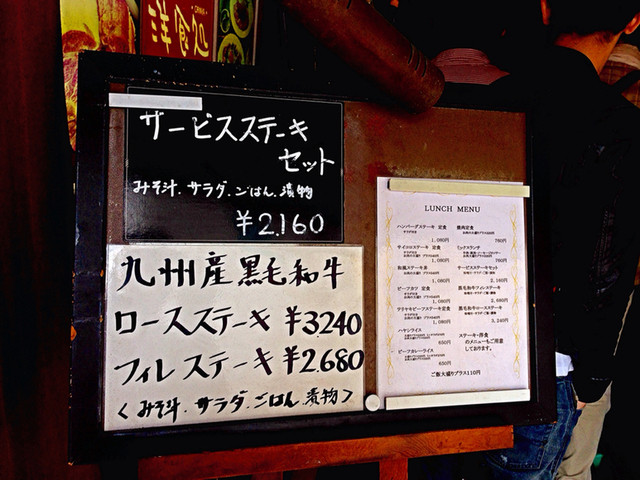 洋食処
サービスステーキ
セット
みそ汁.サラダ.ごはん.漬物
¥2.160
九州産黒毛和牛
ロースステーキ ¥3.240
フィレステーキ ¥2.680
<みそ汁.サラダ.ごはん.漬物>
LUNCH MENU
ハンバーグステーキ 定食
1,080円
サイコロステーキ 定食
1,080円
和風ステーキ重
1,080円
ビーフカツ 定食
1,080円
テリヤキビーフステーキ定食
1,080円
ハヤシライス
650円
ビーフカレーライス
650円
焼肉定食
780円
ミックスランチ
760円
サービスステーキセット
2,160円
黒毛和牛フィレステーキ
2,680円
黒毛和牛ロースステーキ
3,240円
ステーキ・洋食
のメニューもご用意
しております。
ご飯大盛りプラス110円